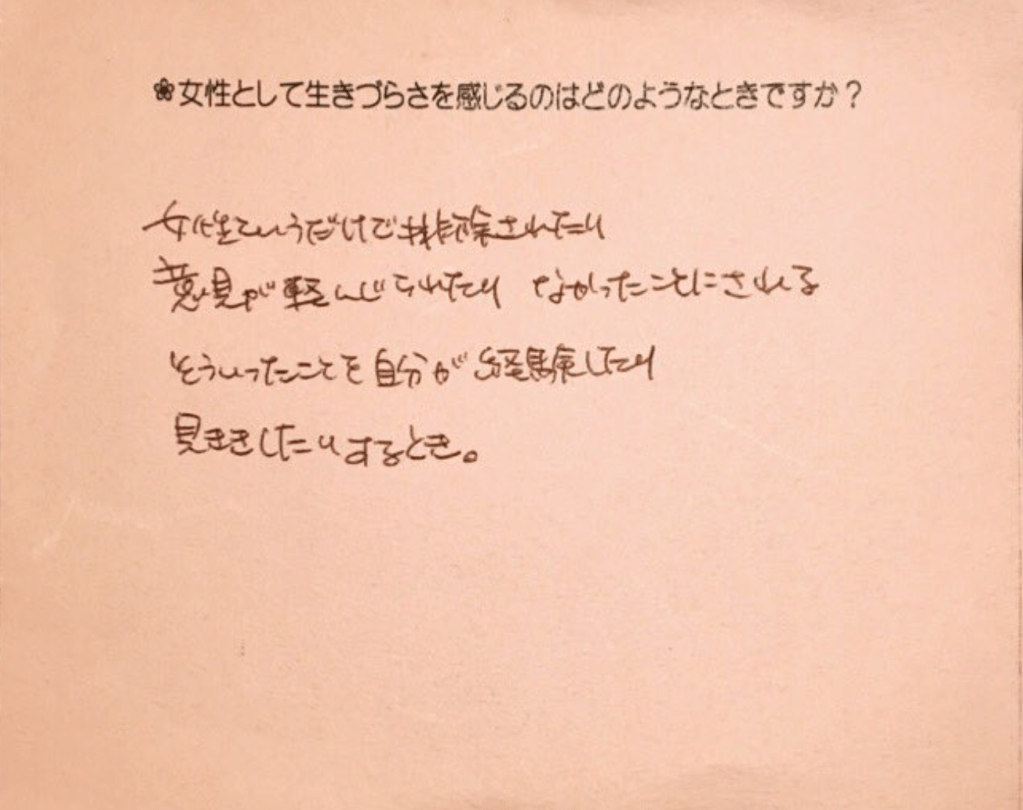 ❀女性として生きづらさを感じるのはどのようなときですか？
女性ていうだけで排除されたり
意見が軽んじられたり なかったことにされる
そういったことを自分が経験したり
見ききしたりするとき。